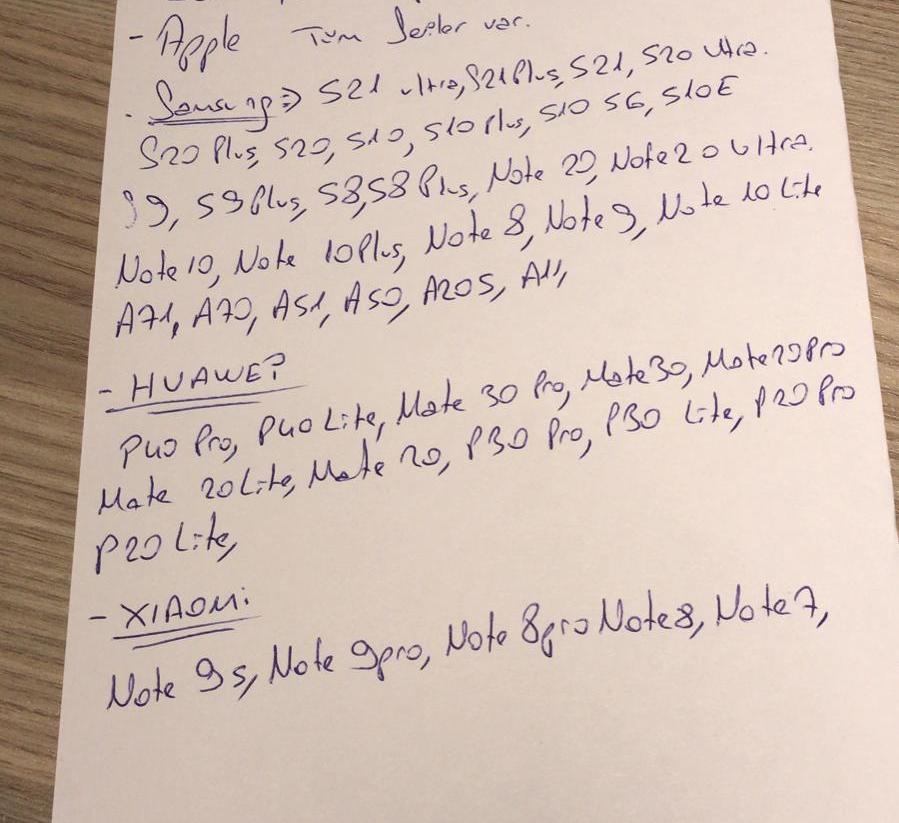 - Apple Tüm Seriler var.
. Samsung => S21 ultra, S21 Plus, S21, S20 ultra.
S20 Plus, S20, S10, S10 Plus, S10 5G, S10E
S9, S9 Plus, S8, S8 Plus, Note 20, Note 20 ultra.
Note 10, Note 10 Plus, Note 8, Note 9, Note 10 Lite
A71, A70, A51, A50, A20S, A11,
- HUAWEİ
P40 Pro, P40 Lite, Mate 30 Pro, Mate 30, Mate 20 Pro
Mate 20 Lite, Mate 20, P30 Pro, P30 Lite, P20 Pro
P20 Lite,
- XIAOMi
Note 9s, Note 9pro, Note 8pro Note 8, Note 7,